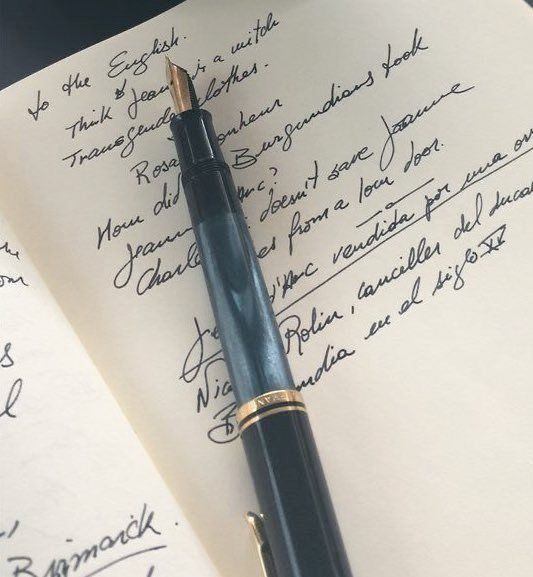 to the English.
Think Jeanne is a witch
Transgender clothes.
Rosa
How did Burgundians took
Jeanne
doesn't save Jeanne
from a low door.
vendida por una
Rolin, canciller del
en el siglo XV
Bismarck.